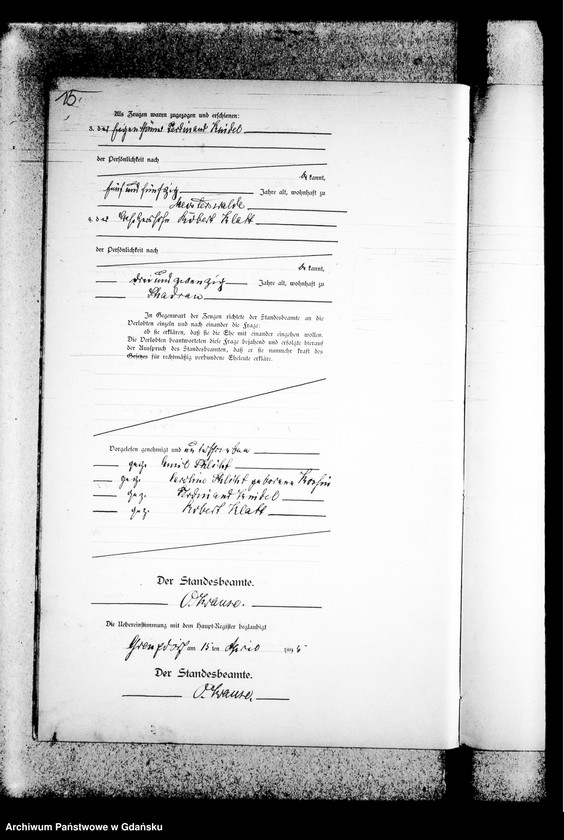 15.
Als Zeugen waren zugezogen und erschienen:
3. der Eigenthümer Ferdinand Knidel
der Persönlichkeit nach
be kannt,
fünf und fünfzig Jahre alt, wohnhaft zu
4. der Robert Klatt
der Persönlichkeit nach
be kannt,
drei und zwanzig Jahre alt, wohnhaft zu
Schadrau
In Gegenwart der Zeugen richtete der Standesbeamte an die
Verlobten einzeln und nach einander die Frage:
ob sie erklären, daß sie die Ehe mit einander eingehen wollen.
Die Verlobten beantworteten diese Frage bejahend und erfolgte hierauf
der Ausspruch des Standesbeamten, daß er sie nunmehr kraft des
Gesetzes für rechtmäßig verbundene Eheleute erkläre.
Vorgelesen, genehmigt und unterschrieben
gez. Emil
gez. Caroline geborene
gez. Ferdinand Knidel
gez. Robert Klatt
Der Standesbeamte.
O. Krause.
Die Uebereinstimmung mit dem Haupt-Register beglaubigt
am 15 ten April
Der Standesbeamte.
O. Krause.
Archiwum Państwowe w Gdańsku